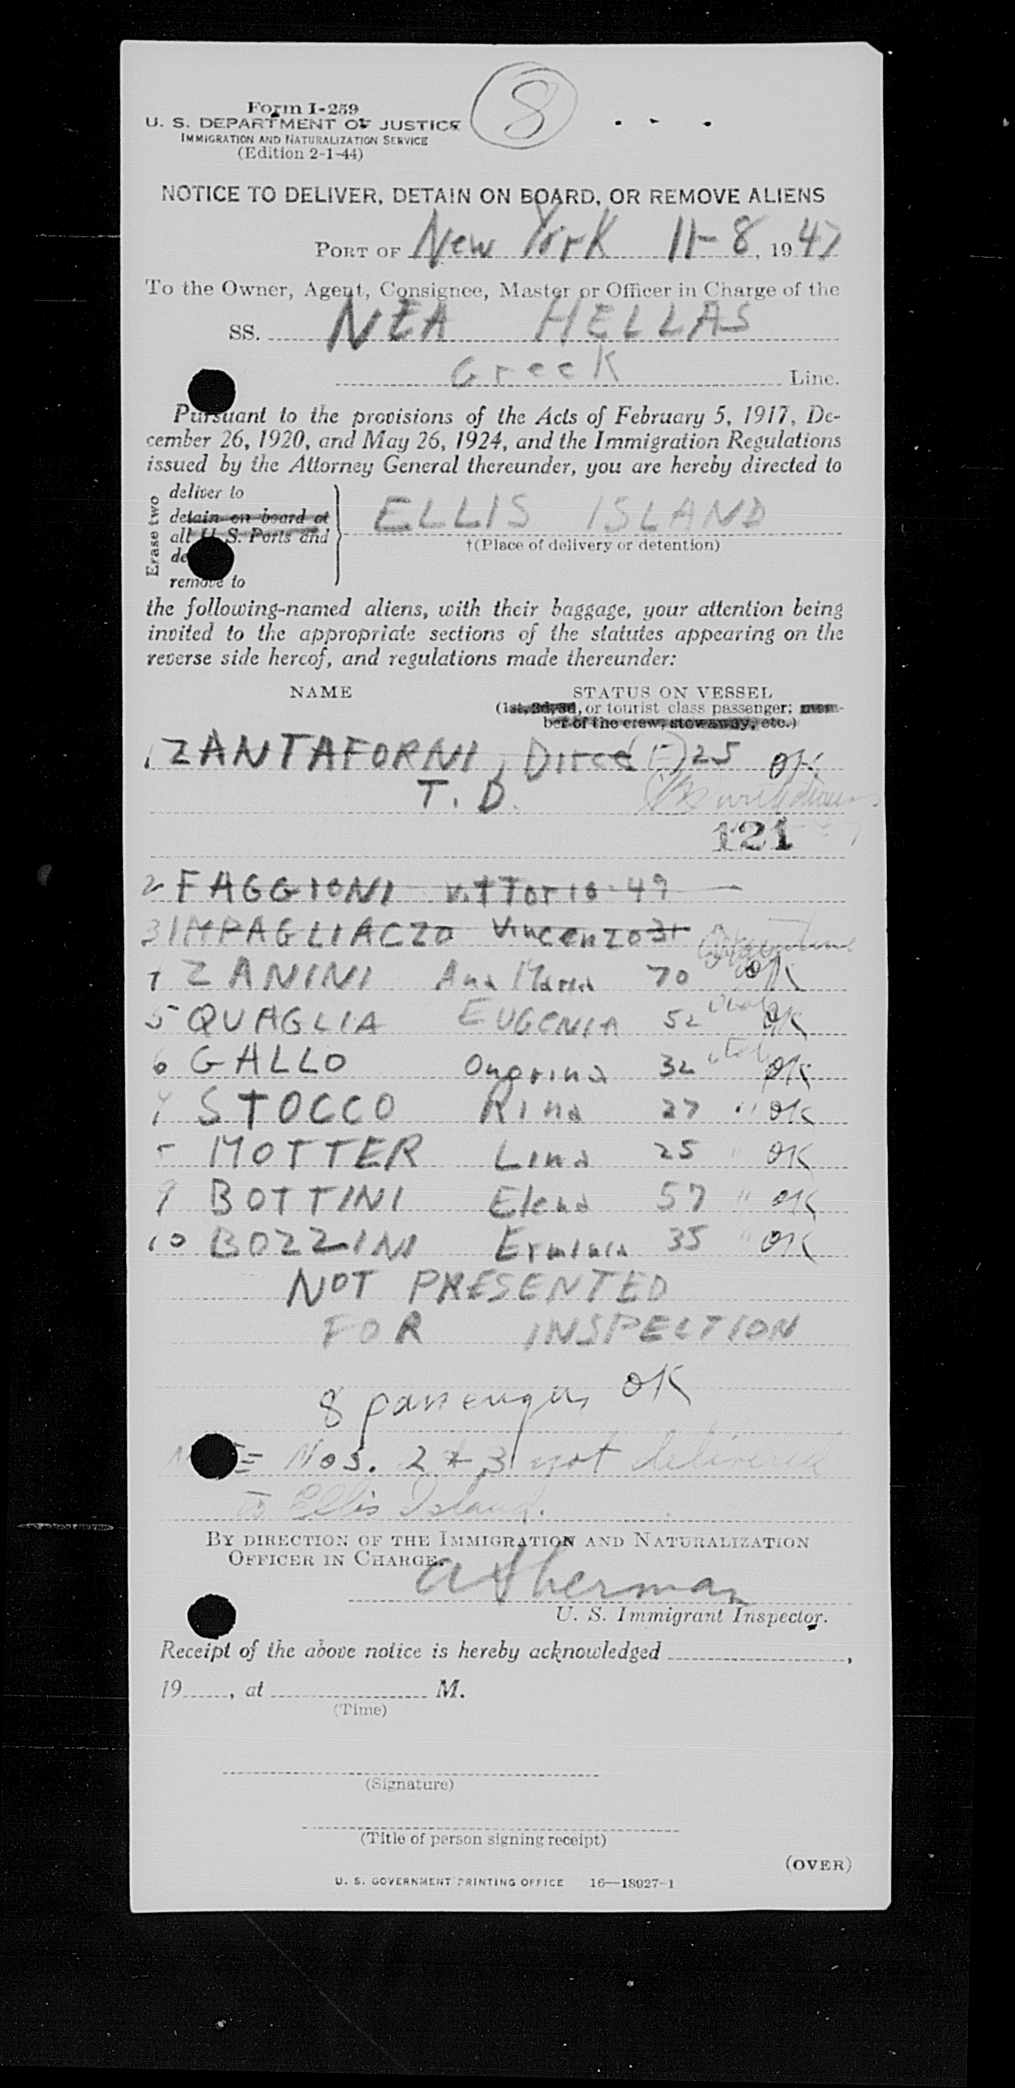 8
Form I-259
U. S. DEPARTMENT OF JUSTICE
IMMIGRATION AND NATURALIZATION SERVICE
(Edition 2-1-44)
NOTICE TO DELIVER, DETAIN ON BOARD, OR REMOVE ALIENS
PORT OF New York 11-8, 1947
To the Owner, Agent, Consignee, Master or Officer in Charge of the
SS. NEA HELLAS
Greek Line.
Pursuant to the provisions of the Acts of February 5, 1917, De-
cember 26, 1920, and May 26, 1924, and the Immigration Regulations
issued by the Attorney General thereunder, you are hereby directed to
Erase two
deliver to
detain on board at
all U. S. Ports and
remove to
ELLIS ISLAND
†(Place of delivery or detention)
the following-named aliens, with their baggage, your attention being
invited to the appropriate sections of the statutes appearing on the
reverse side hereof, and regulations made thereunder:
NAME STATUS ON VESSEL
(1st, 2d, 3d, or tourist class passenger; mem-
ber of the crew, stowaway, etc.)
1 ZANTAFORNI, Dirce (F) 25 OK
T. D.
121
2 FAGGIONI Vittorio 49
3 IMPAGLIACZO Vincenzo 31
ZANINI Ana Maria 70 OK
5 QUAGLIA EUGENIA 52 OK
6 GALLO 32 OK
7 STOCCO Rina 27 " OK
MOTTER Lina 25 " OK
9 BOTTINI Elena 57 " OK
10 BOZZINI Erminia 35 " OK
NOT PRESENTED
FOR INSPECTION
8 passengers OK
Nos. 2 & 3 not delivered
to Ellis Island.
BY DIRECTION OF THE IMMIGRATION AND NATURALIZATION
OFFICER IN CHARGE.
A Sherman
U. S. Immigrant Inspector.
Receipt of the above notice is hereby acknowledged ,
19 , at M.
(Time)
(Signature)
(Title of person signing receipt)
(OVER)
U. S. GOVERNMENT PRINTING OFFICE 16—18027-1